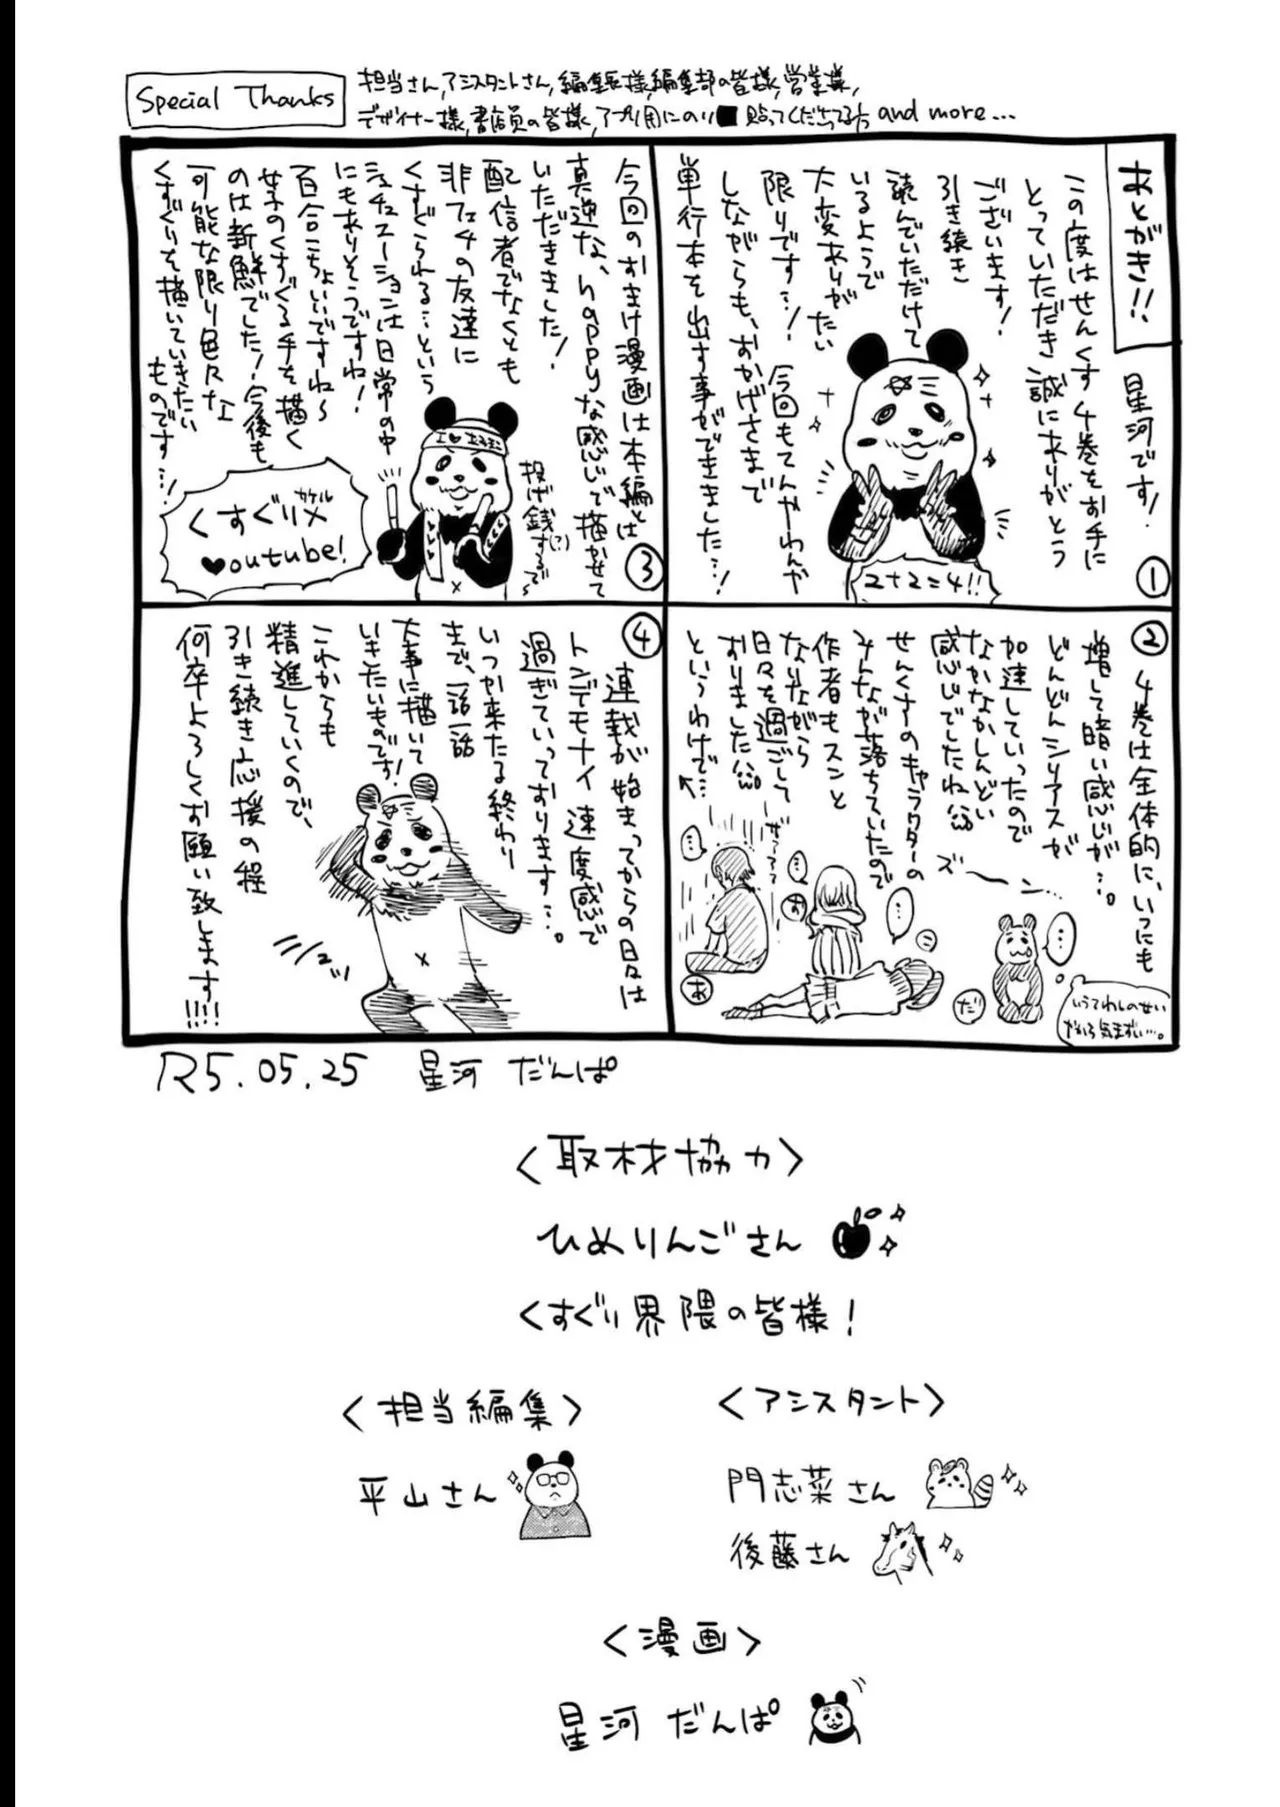 Special Thanks
担当さん,アシスタントさん,編集長様,編集部の皆様,営業様,
デザイナー様,書店員の皆様,アプリ用にのり■貼ってくださってる方 and more...
あとがき!!
星河です!
この度はせんくす4巻をお手に
とっていただき誠にありがとう
ございます!
引き続き
読んでいただけて
いるようで
大変ありがたい
限りです…! 今回もてんやわんや
しながらも、おかげさまで
単行本を出す事ができました…!
2+2=4!!
①
②
4巻は全体的に、いつにも
増して暗い感じが…。
どんどんシリアスが
加速していったので
なかなかしんどい
感じでしたね
せんくすのキャラクターの
みんなが落ちていたので
作者もスンと
なりながら
日々を過ごして
おりました
というわけで…
ズーン…
…
…
…
…
あ
お
こ
だ
いうてわしのせい
やから気まずい…。
③
今回のおまけ漫画は本編とは
真逆な、happyな感じで描かせて
いただきました!
配信者でなくとも
非フェチの友達に
くすぐられる…という
シチュエーションは日常の中
にもありそうですね!
百合こちょいいですね〜
女子のくすぐる手を描く
のは新鮮でした!今後も
可能な限り色々な
くすぐりを描いていきたい
ものです…!
投げ銭するで〜
(?)
くすぐり×
カケル
♥outube!
④
連載が始まってからの日々は
トンデモナイ速度感で
過ぎていっております…。
いつか来たる終わり
まで、一話一話
大事に描いて
いきたいものです!
これからも
精進していくので、
引き続き応援の程
何卒よろしくお願い致します!!!!
R5.05.25 星河 だんぱ
<取材協力>
ひめりんごさん
くすぐり界隈の皆様!
<担当編集>
平山さん
<アシスタント>
門志菜さん
後藤さん
<漫画>
星河 だんぱ